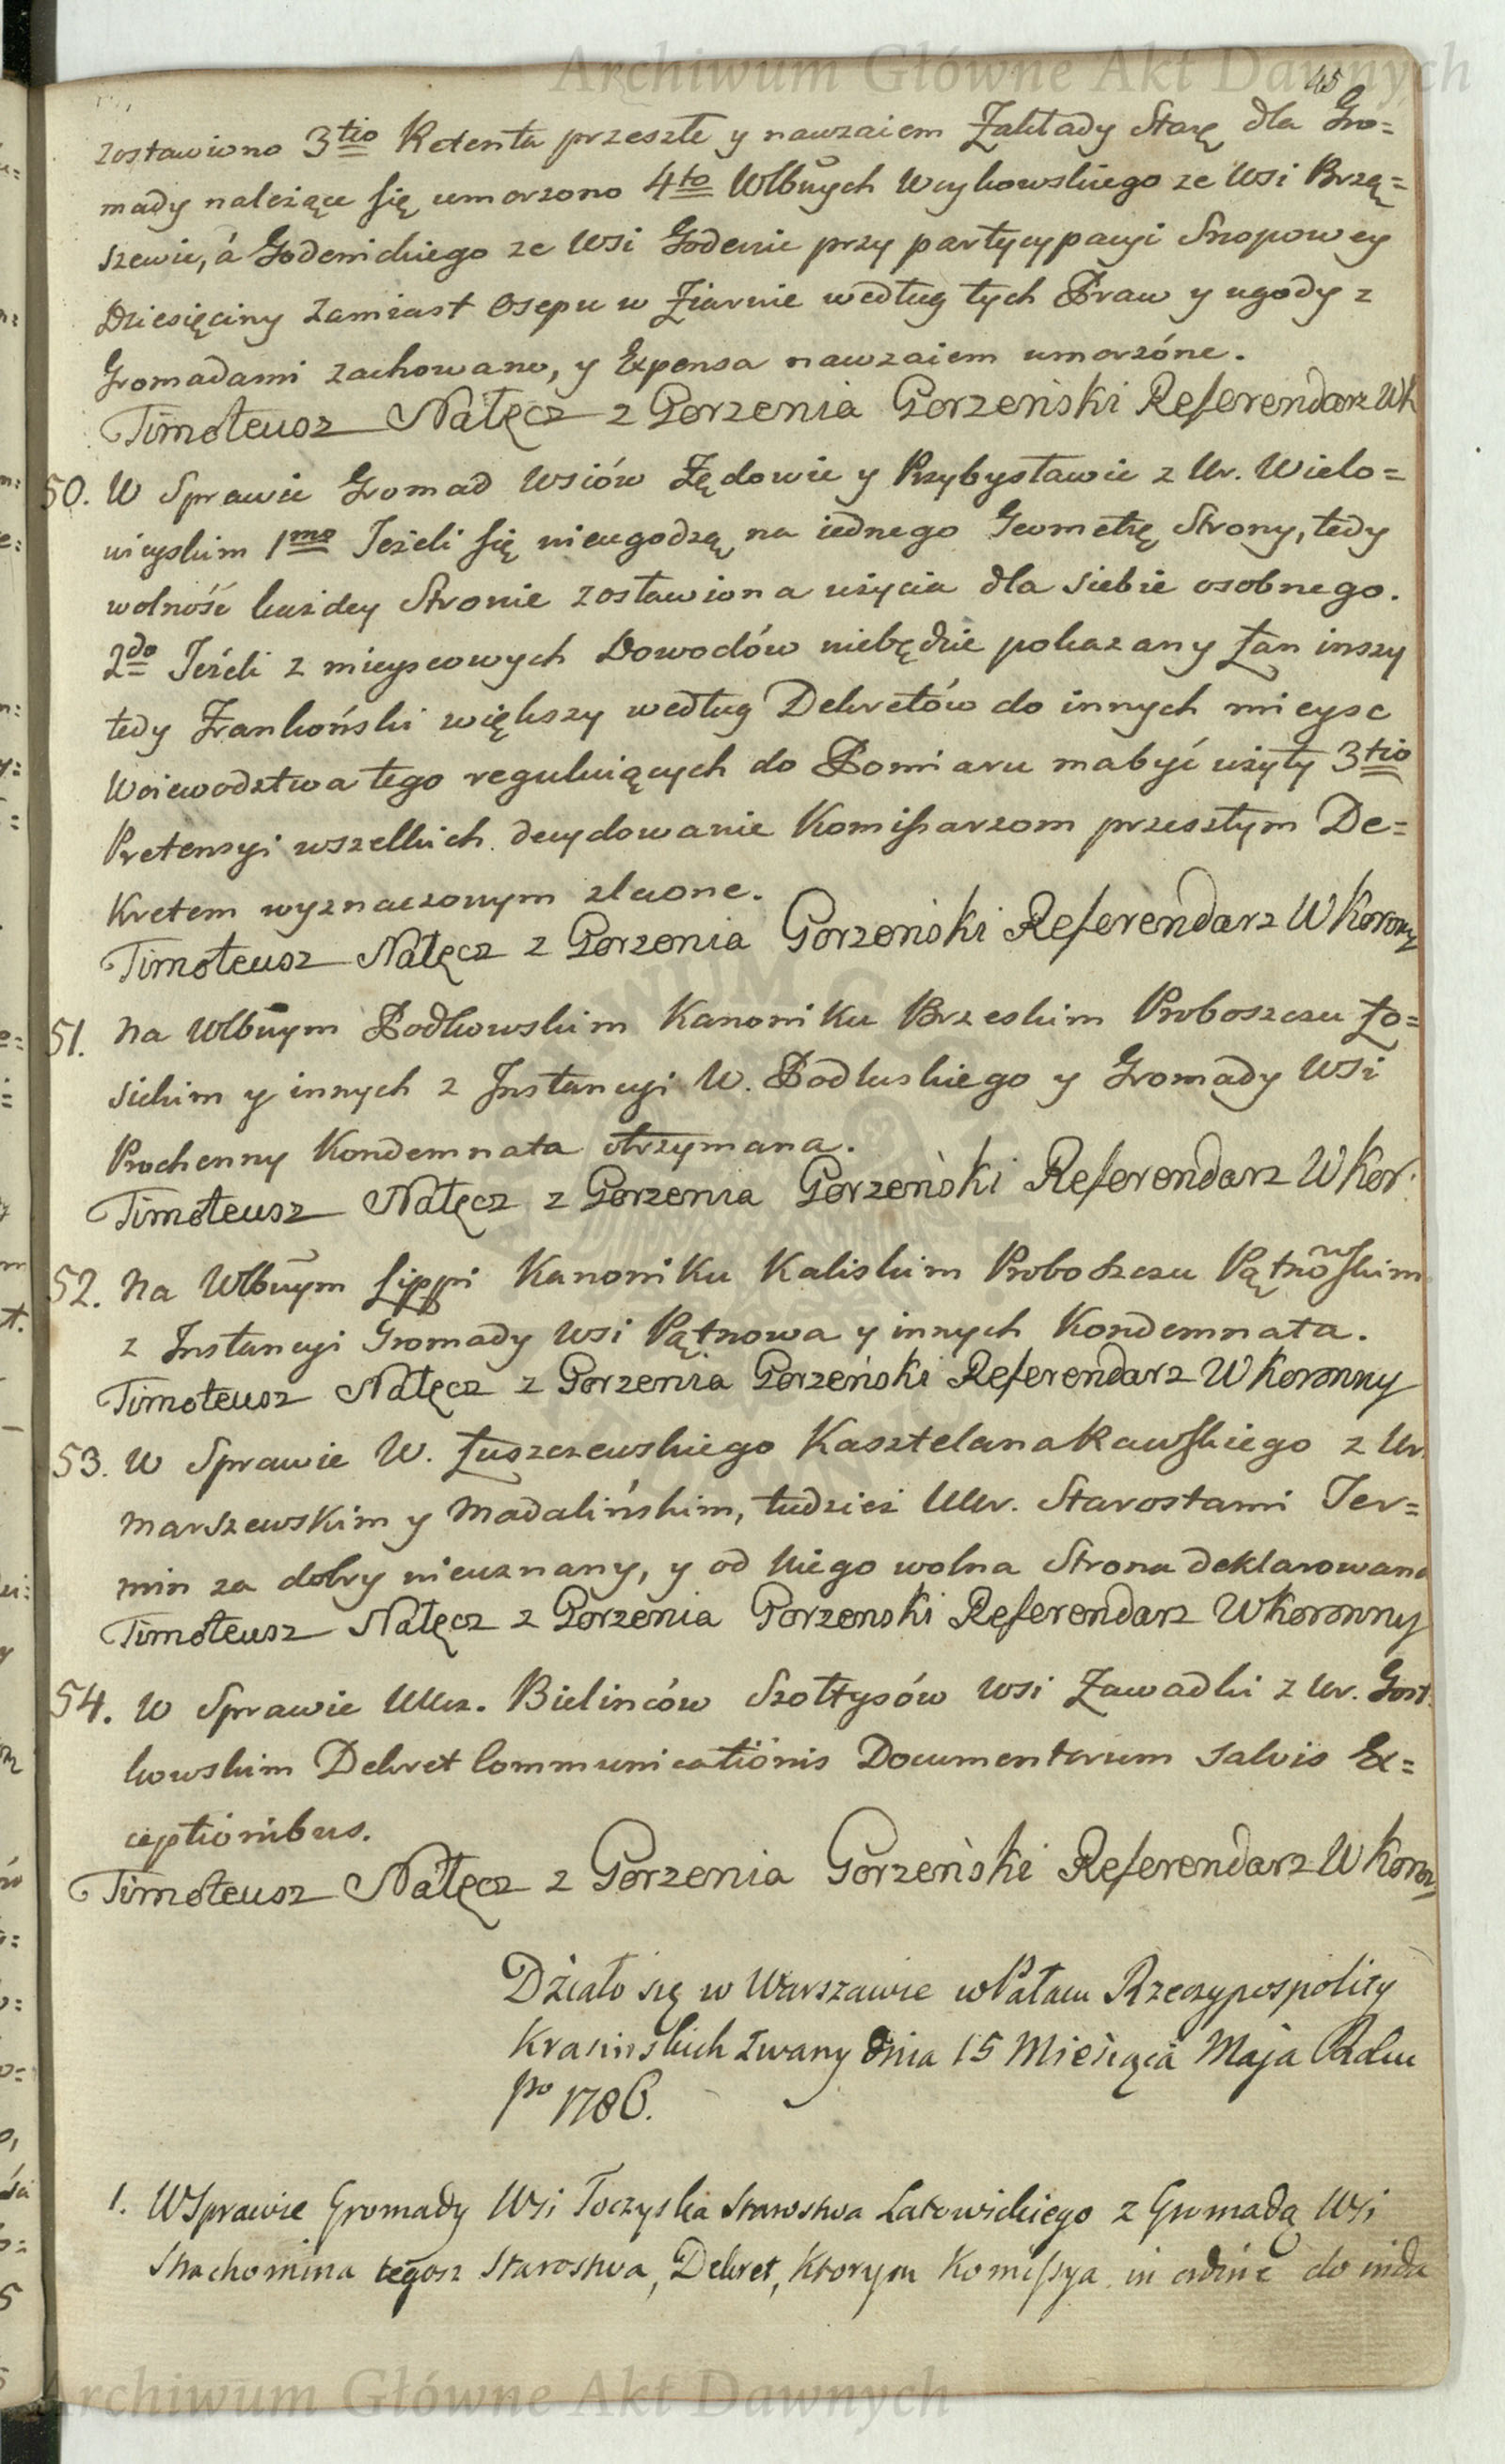 Archiwum Główne Akt Dawnych
45
zostawiono 3tio Retenta przeszłe y nawzaiem Zakłady Starę dla Gro=
mady należące się umorzono 4to Wlbnych Wcykowskiego ze Wsi Brzą=
szewic, á Godenickiego ze Wsi Godenic przy partycypacyi Snopowey
Dziesięciny zamiast Osepu w Ziarnie według tych Praw y ugody z
Gromadami zachowano, y Expensa nawzaiem umorzóne.
Timoteusz Nałęcz z Gorzenia Gorzeński Referendarz WK
50. W Sprawie Gromad Wsiów Zędowic y Przybysławic z Ur. Wielo=
wieyskim 1mo Jeżeli się nieugodzą na iednego Geometrę Strony, tedy
wolność każdey Stronie zostawiona użycia dla siebie osobnego.
2do Jeżeli z mieyscowych Dowodów niebędzie pokazany Łan inszy
tedy Frankoński większy według Dekretów do innych mieysc
Woiewodztwa tego reguluiących do Pomiaru mabyć użyty 3tio
Pretensyi wszelkich decydowanie Komissarzom przeszłym De=
kretem wyznaczonym zlecone.
Timoteusz Nałęcz z Gorzenia Gorzeński Referendarz W Koronny
51. Na Wlbnym Podkowskim Kanoniku Brzeskim Proboszczu Ło=
sickim y innych z Instancyi W. Podluskiego y Gromady Wsi
Prochenny Kondemnata otrzymana.
Timoteusz Nałęcz z Gorzenia Gorzeński Referendarz W Kor.
52. Na Wlbnym Lippi Kanoniku Kaliskim Proboszczu Pątnowskim
z Instancyi Gromady Wsi Pątnowa y innych Kondemnata.
Timoteusz Nałęcz z Gorzenia Gorzeński Referendarz W Koronny
53. W Sprawie W. Łuszczewskiego Kasztelana Rawskiego z Ur.
Marszewskim y Madalińskim, tudzież UUr. Starostami Ter=
min za dobry nieuznany, y od Niego wolna Strona deklarowana
Timoteusz Nałęcz z Gorzenia Gorzenski Referendarz W Koronny
54. W Sprawie UUcz. Bielinców Szołtysów Wsi Zawadki z Ur. Gost
kowskim Dekret Communicationis Documentorum salvis Ex=
ceptionibus.
Timoteusz Nałęcz z Gorzenia Gorzeński Referendarz W Koronny
Działo się w Warszawie w Pałacu Rzeczypospolity
Krasinskich zwany dnia 15 Miesiąca Maja Roku
po 1786.
1. W Sprawie Gromady Wsi Toczyska Starostwa Latowickiego z Gromadą Wsi
Strachomina tegosz Starostwa, Dekret, Ktorym Komissya in ordine do
Archiwum Główne Akt Dawnych